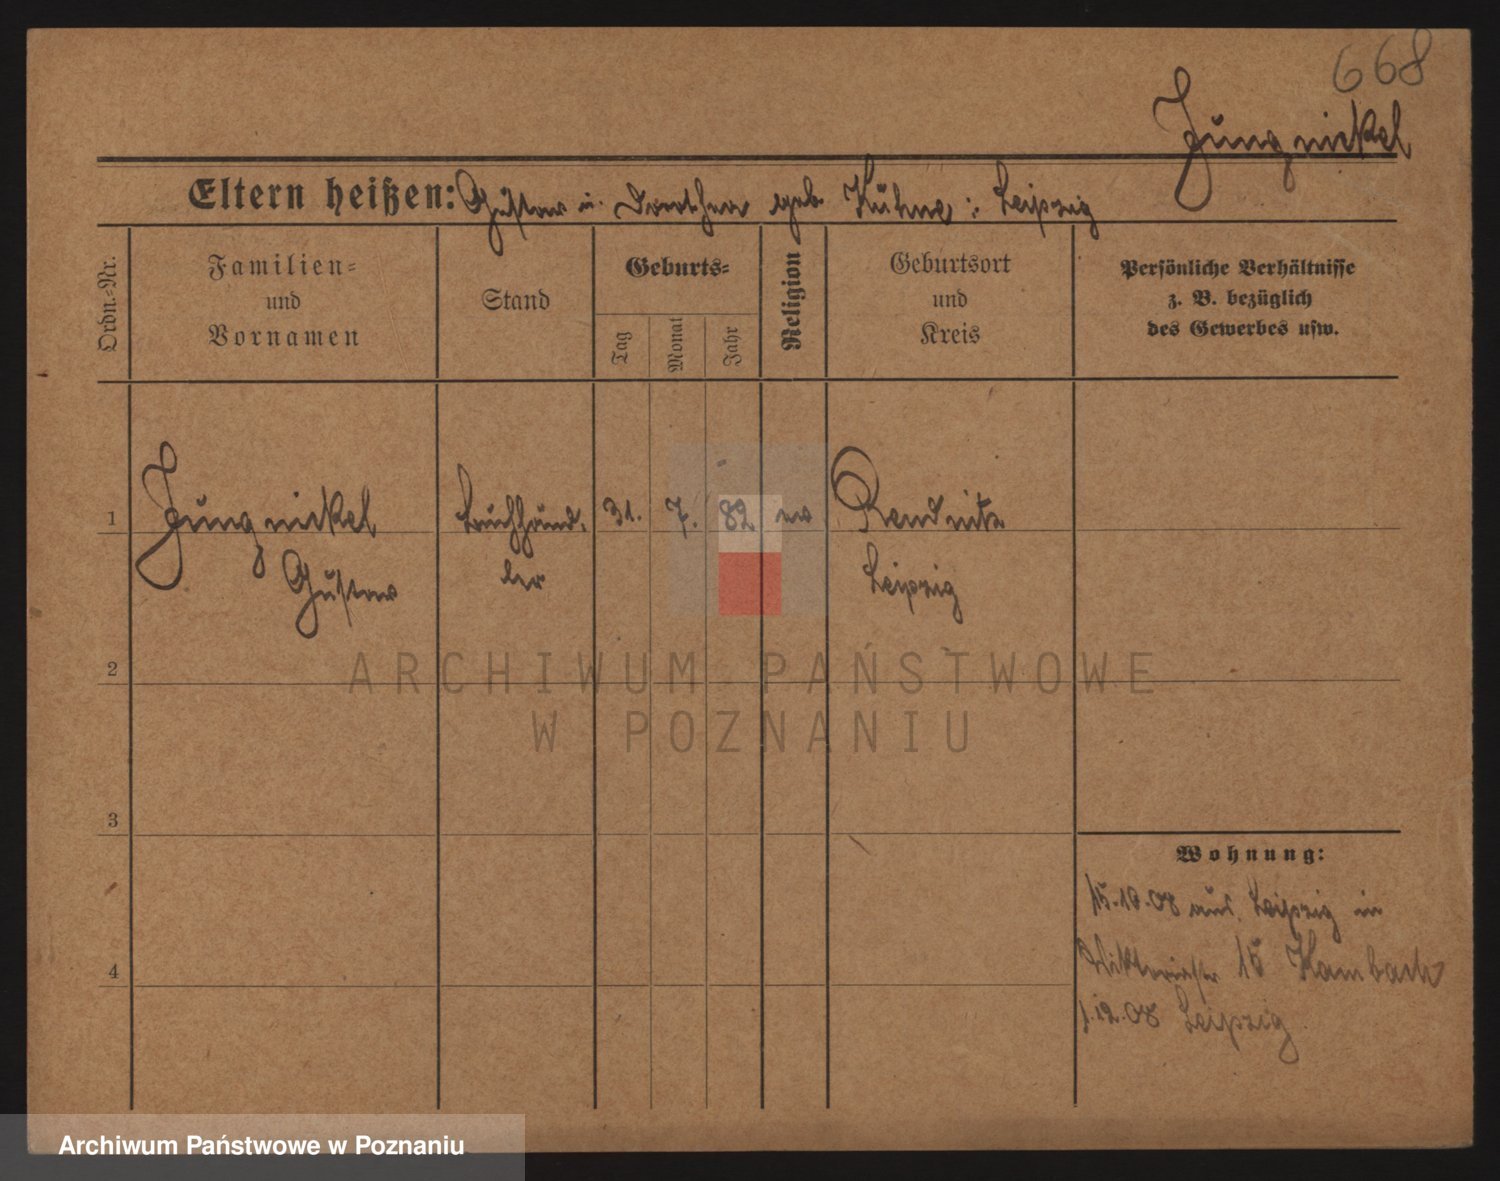 668
Jungnickel
Eltern heißen: Gustav u. Dorothea geb. Kühne; Leipzig
Ordn.-Nr.
Familien-
und
Vornamen
Stand
Geburts-
Tag
Monat
Jahr
Religion
Geburtsort
und
Kreis
Persönliche Verhältnisse
z. B. bezüglich
des Gewerbes usw.
1 Jungnickel Buchhänd- 31. 7. 82 ev Reudnitz
Gustav ler Leipzig
2
3
4
Wohnung:
15.10.08 aus Leipzig in
Viktoriastr 15 Hambach
1.12.08 Leipzig
ARCHIWUM PAŃSTWOWE
W POZNANIU
Archiwum Państwowe w Poznaniu